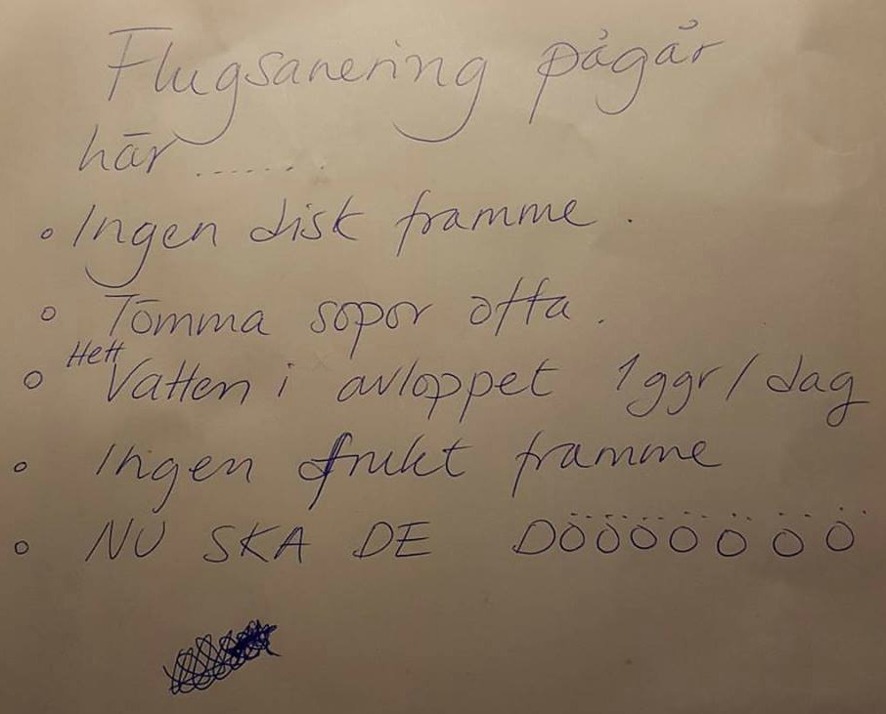 Flugsanering pågår
här .......
• Ingen disk framme.
• Tömma sopor ofta.
• Hett Vatten i avloppet 1ggr/dag
• Ingen frukt framme
• NU SKA DE DÖÖÖÖÖÖÖ